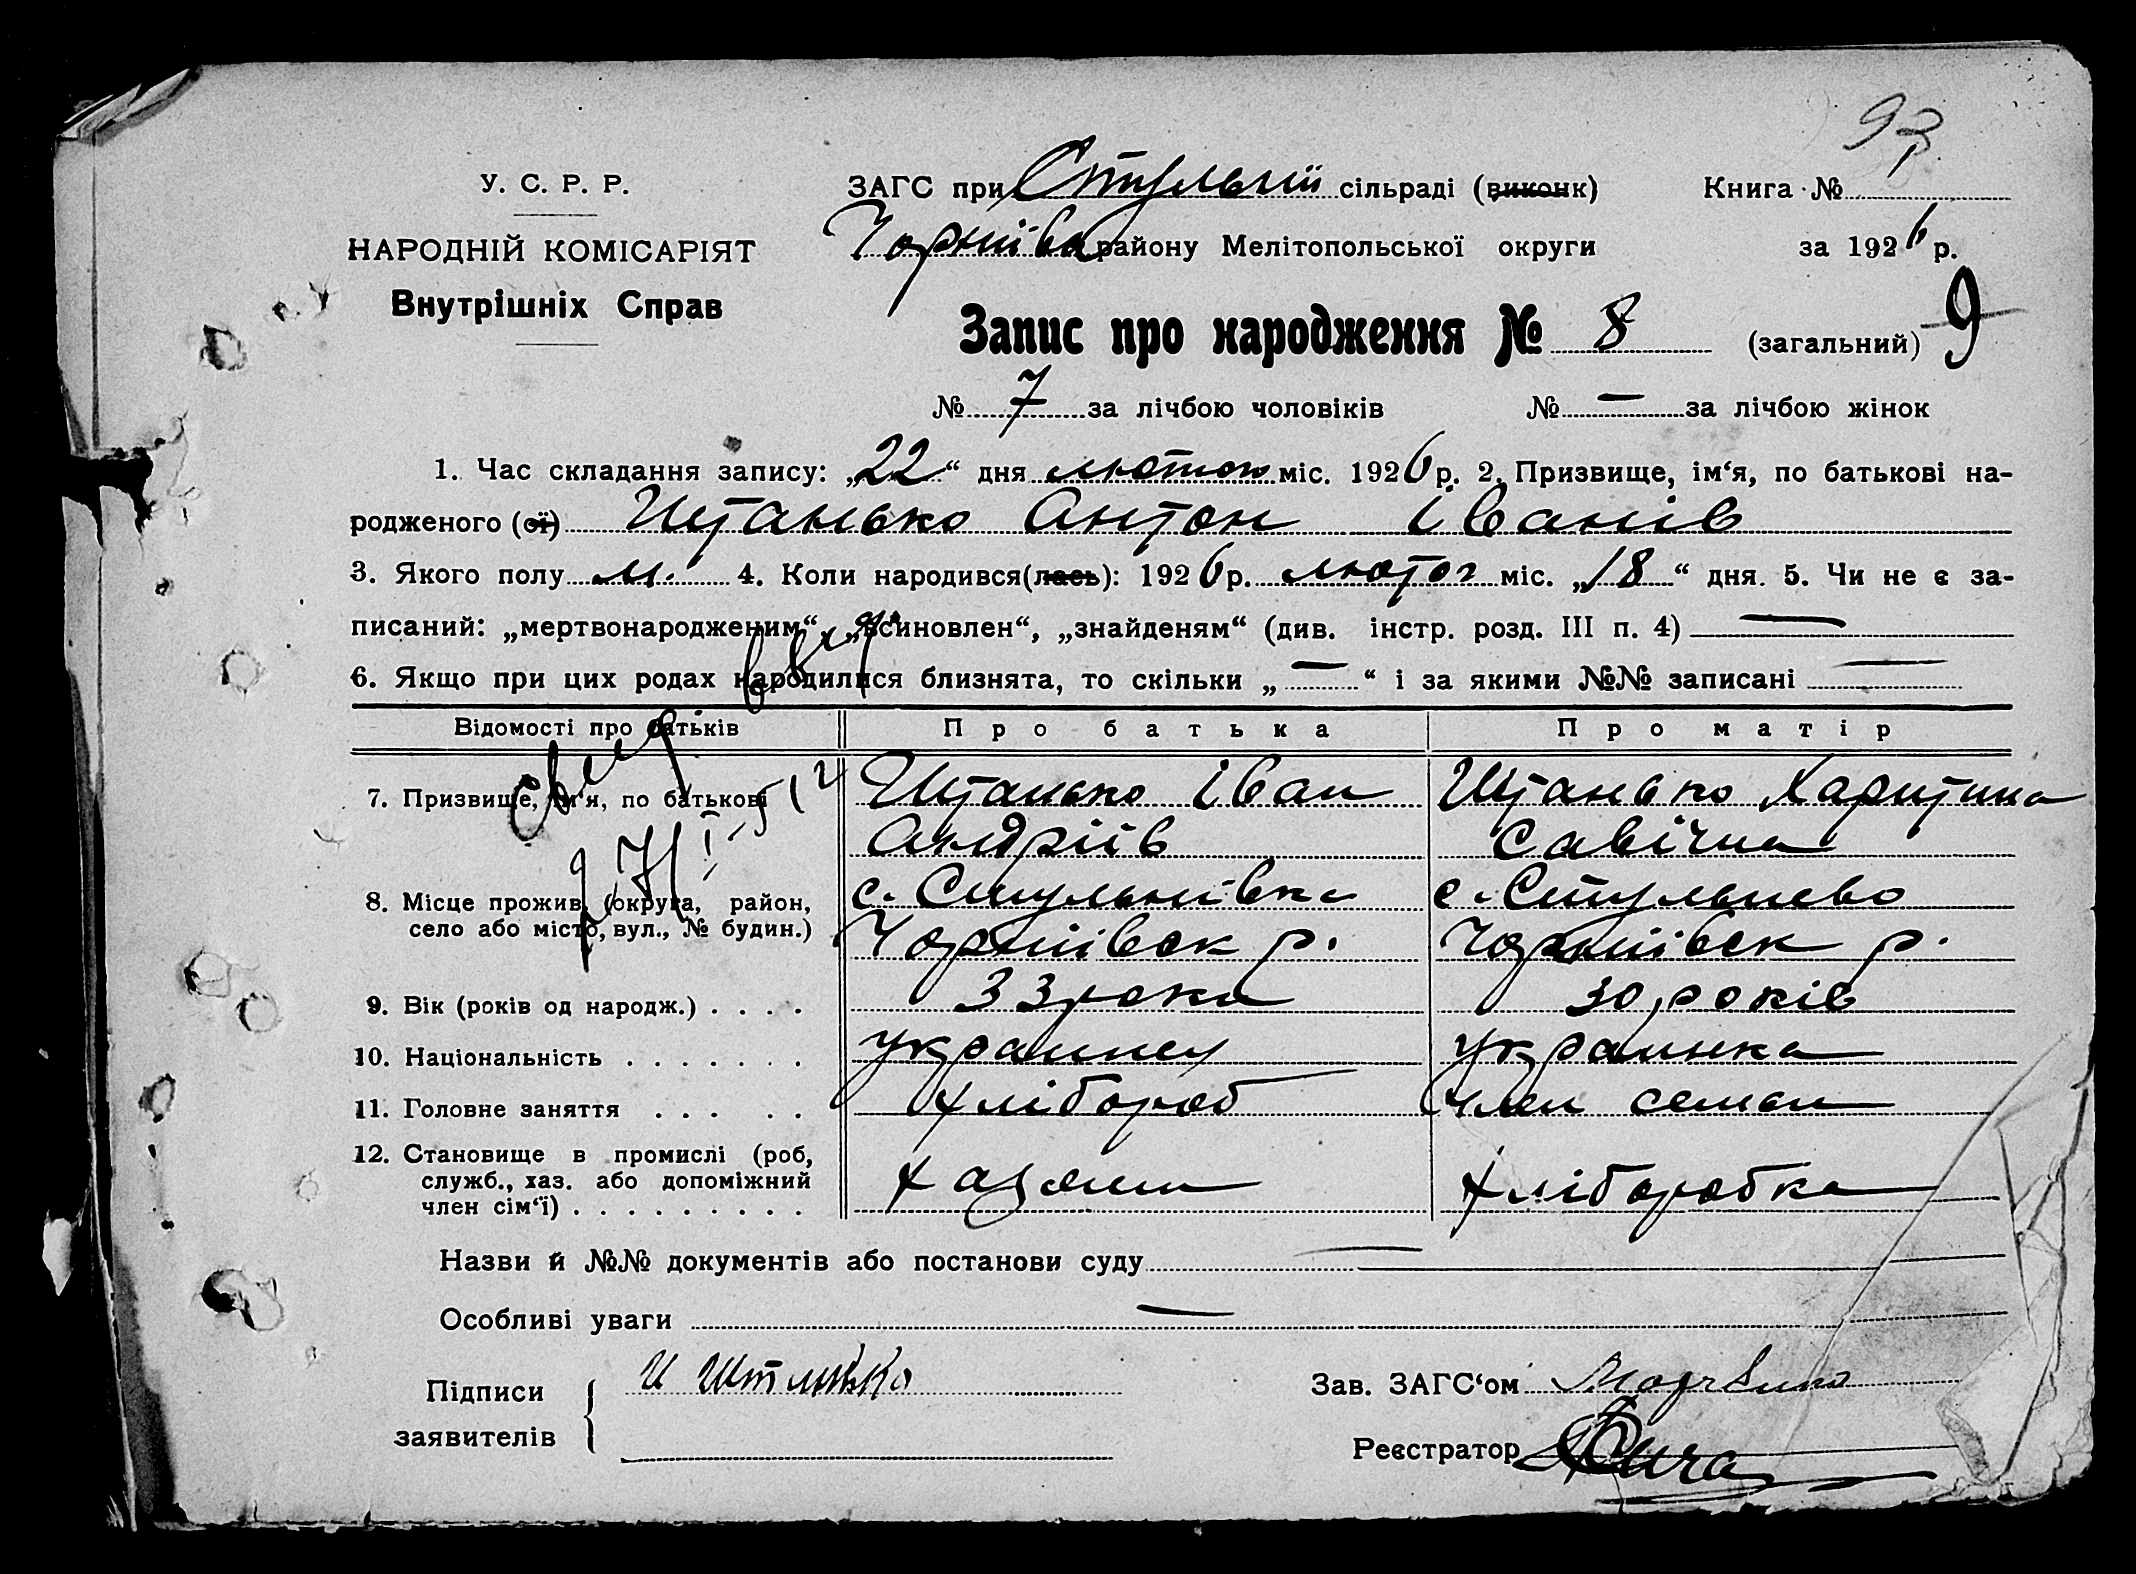 93
У. С. Р. Р.
ЗАГС при Стульнії сільраді (виконк)
Книга №
НАРОДНІЙ КОМІСАРІЯТ
Чорніїва району Мелітопольської округи
за 1926 р.
Внутрішніх Справ
Запис про народження № 8 (загальний) 9
№ 7 за лічбою чоловіків № — за лічбою жінок
1. Час складання запису: „22“ дня лютого міс. 1926 р. 2. Призвище, ім‘я, по батькові на-
родженого (ої) Штанько Антон Іванів
3. Якого полу м. 4. Коли народився(лась): 1926 р. лютог міс. „18“ дня. 5. Чи не є за-
писаний: „мертвонародженим“, „всиновлен“, „знайденям“ (див. інстр. розд. III п. 4) —
6. Якщо при цих родах народилися близнята, то скільки „—“ і за якими №№ записані —
Відомості про батьків Про батька Про матір
7. Призвище, ім‘я, по батькові Штанько Іван Штанько Харитина
Андріїв Савічна
8. Місце прожив. (округа, район, с. Стульнівка с. Стульнево
село або місто, вул., № будин.) Чорніівск р. Чорніівск р.
9. Вік (років од народж.) . . . . 33 рока 30 років
10. Національність . . . . . . . украинец украинка
11. Головне заняття . . . . . хлібороб член семьи
12. Становище в промислі (роб,
служб., хаз. або допоміжний хазяин хліборобка
член сім‘ї) . . . . . . . . .
Назви й №№ документів або постанови суду —
Особливі уваги —
Підписи И Штанько
заявителів
Зав. ЗАГС‘ом
Реєстратор